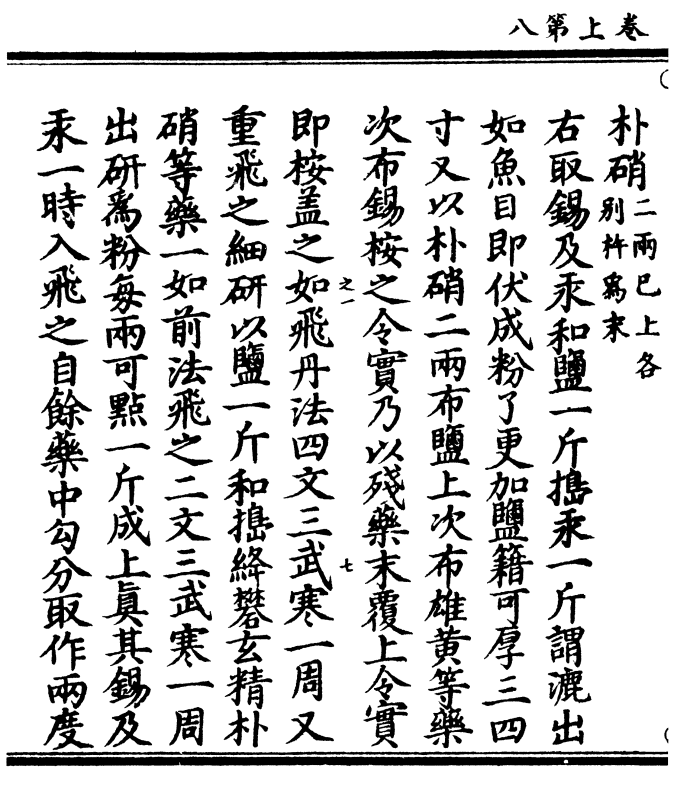 卷上第八
朴硝二兩已上各別杵爲末
右取錫及汞和鹽一斤搗汞一斤謂漉出
如魚目即伏成粉了更加鹽籍可厚三四
寸又以朴硝二兩布鹽上次布雄黃等藥
次布錫桉之令實乃以殘藥末覆上令實
之一
七
即桉盖之如飛丹法四文三武寒一周又
重飛之細研以鹽一斤和搗絳礬玄精朴
硝等藥一如前法飛之二文三武寒一周
出研爲粉每兩可點一斤成上眞其錫及
汞一時入飛之自餘藥中勾分取作兩度